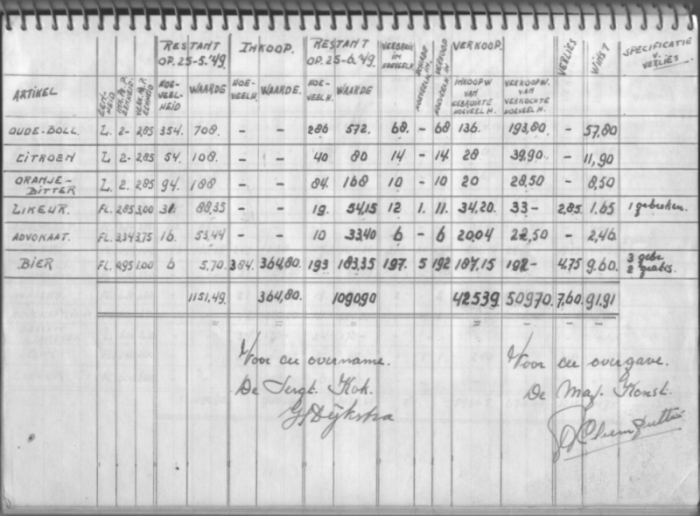 RESTANT OP. 25-5.'49. INKOOP. RESTANT OP. 25-6.'49. VERKOOP. VERLIES WINST SPECIFICATIE v. VERLIES.
ARTIKEL HOE-VEEL-HEID WAARDE HOE-VEELH. WAARDE. HOE-VEELH. WAARDE INKOOPW. VAN GEBRUIKTE HOEVEELH. VERKOOPW. VAN VERKOCHTE HOEVEELH.
OUDE-BOLL. L. 2- 2,85 354. 708. - - 286 572. 68. - 68 136. 193,80 - 57,80
CITROEN L 2- 2,85 54. 108. - - 40 80 14 - 14 28 39,90 - 11,90
ORANJE-BITTER L 2. 2,85 94. 188 - - 84. 168 10 - 10 20 28,50 - 8,50
LIKEUR. FL. 2,85 3,00 31 88,35 - - 19. 54,15 12 1. 11. 34,20. 33- 2,85 1.65 1 gebroken.
ADVOKAAT. FL. 3,34 3,75 16. 53,44 - - 10 33,40 6 - 6 20,04 22,50 - 2,46.
BIER FL. 0,95 1.00 6 5,70 384. 364,80. 193 183,35 197. 5 192 187.15 192- 4.75 9.60.
1151,49. 364,80. 1090,90 425,39 509,70 7,60 91.91
Voor de overname. Voor de overgave.
De Sergt. Kok. De Maj. Konst.
G Dijkstra